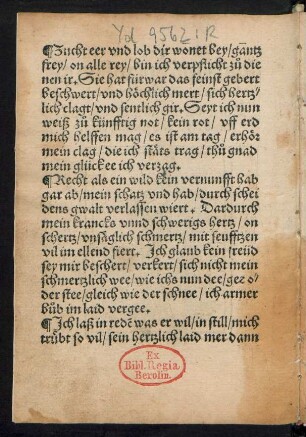 Yd 9562 : R
¶Zucht eer vnd lob dir wonet bey/gantz
frey/on alle rey/bin ich verpflicht zů die
nen ir. Sie hat fürwar das feinst gebert
beschwert/vnd höchlich mert/sich hertz/
lich clagt/vnd sentlich gir. Seyt ich nun
weiß zů künfftig not/kein rot/vff erd
mich helffen mag/es ist am tag/erhör
mein clag/die ich stäts trag/thů gnad
mein glück ee ich verzag.
¶Recht als ein wild kein vernunfft hab
gar ab/mein schatz vnd hab/durch schei
dens gwalt verlassen wiert. Dardurch
mein krancks vnnd schwerigs hertz/on
schertz/vnsäglich schmertz/mit seufftzen
vil im ellend fiert. Ich glaub kein freüd
sey mir beschert/verkert/sich nicht mein
schmertzlich wee/wie ichs nun dee/gee o/
der stee/gleich wie der schnee/ich armer
bůb im laid vergee.
¶Ich laß in rede was er wil/in still/mich
trübt so vil/sein hertzlich laid mer dann
Ex
Bibl. Regia
Berolin.